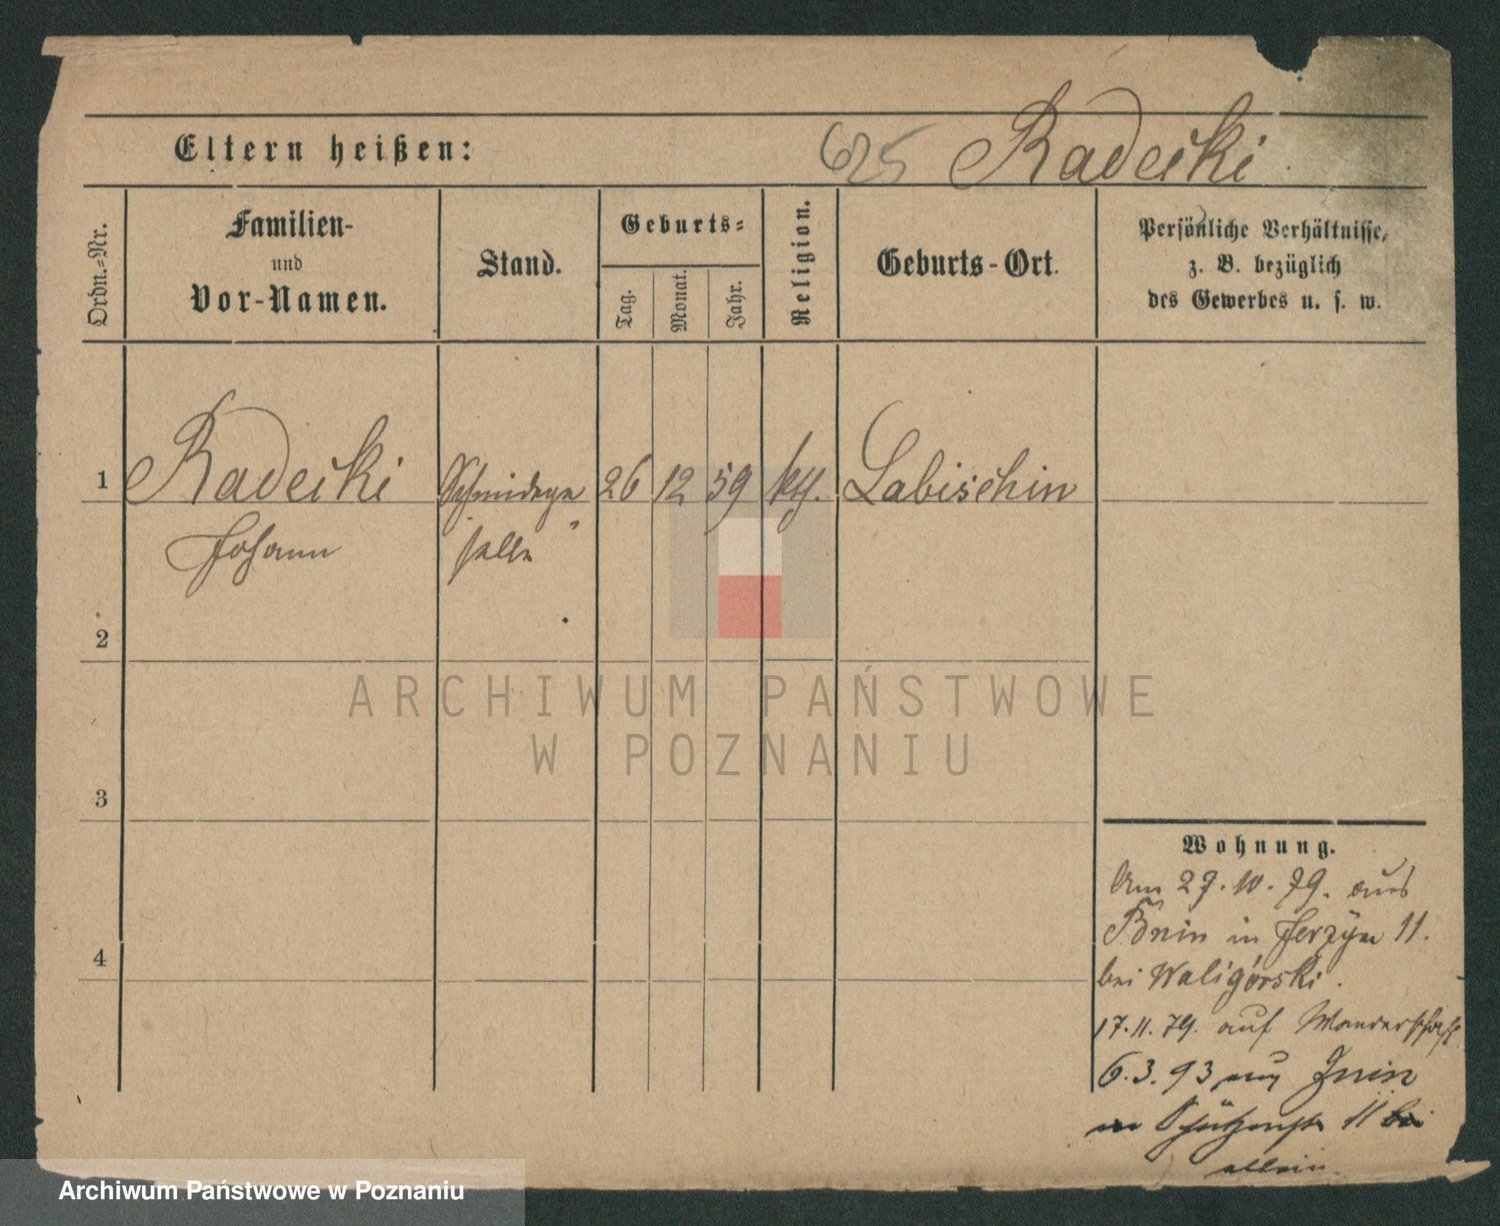 Eltern heißen: 625 Radecki
Ordn.-Nr.
Familien-
und
Vor-Namen.
Stand.
Geburts-
Tag.
Monat.
Jahr.
Religion.
Geburts-Ort.
Persönliche Verhältnisse,
z. B. bezüglich
des Gewerbes u. s. w.
1 Radecki Schmidege 26 12 59 kth. Labischin
Johann selle
2
3
4
Wohnung.
Am 29.10.79. aus
Bnin in Jerzyce 11.
bei Waligórski.
17.11.79. auf Wanderschaft
6.3.93 aus Znin
in Schützenstr 11 bei
allein.
ARCHIWUM PAŃSTWOWE
W POZNANIU
Archiwum Państwowe w Poznaniu